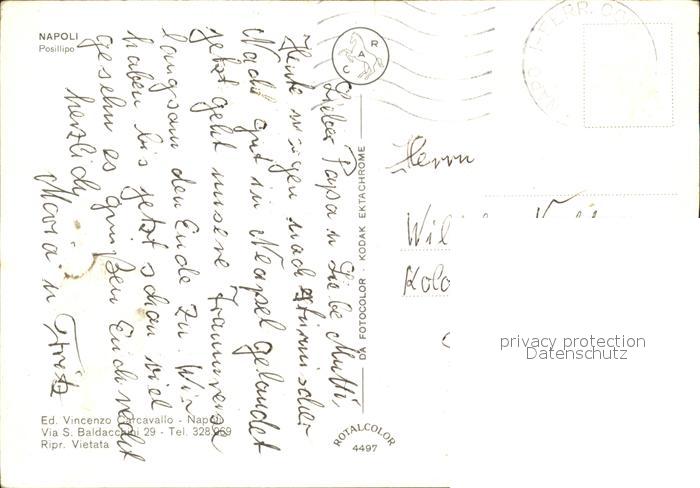 NAPOLI
Posillipo
CAR
NAPOLI-FERR. CO
Lieber Papa u Liebe Mutti,
Heute morgen nach stürmischer
Nacht gut in Neapel gelandet
jetzt geht unsere Traumreise
langsam den Ende zu. Wir
haben bis jetzt schon viel
gesehn es grüßen Euch recht
herzlich
Maria u Fritz
DA FOTOCOLOR · KODAK EKTACHROME
Herrn
Ed. Vincenzo Carcavallo - Napoli
Via S. Baldacchini 29 - Tel. 328.969
Ripr. Vietata
ROTALCOLOR
4497
privacy protection
Datenschutz